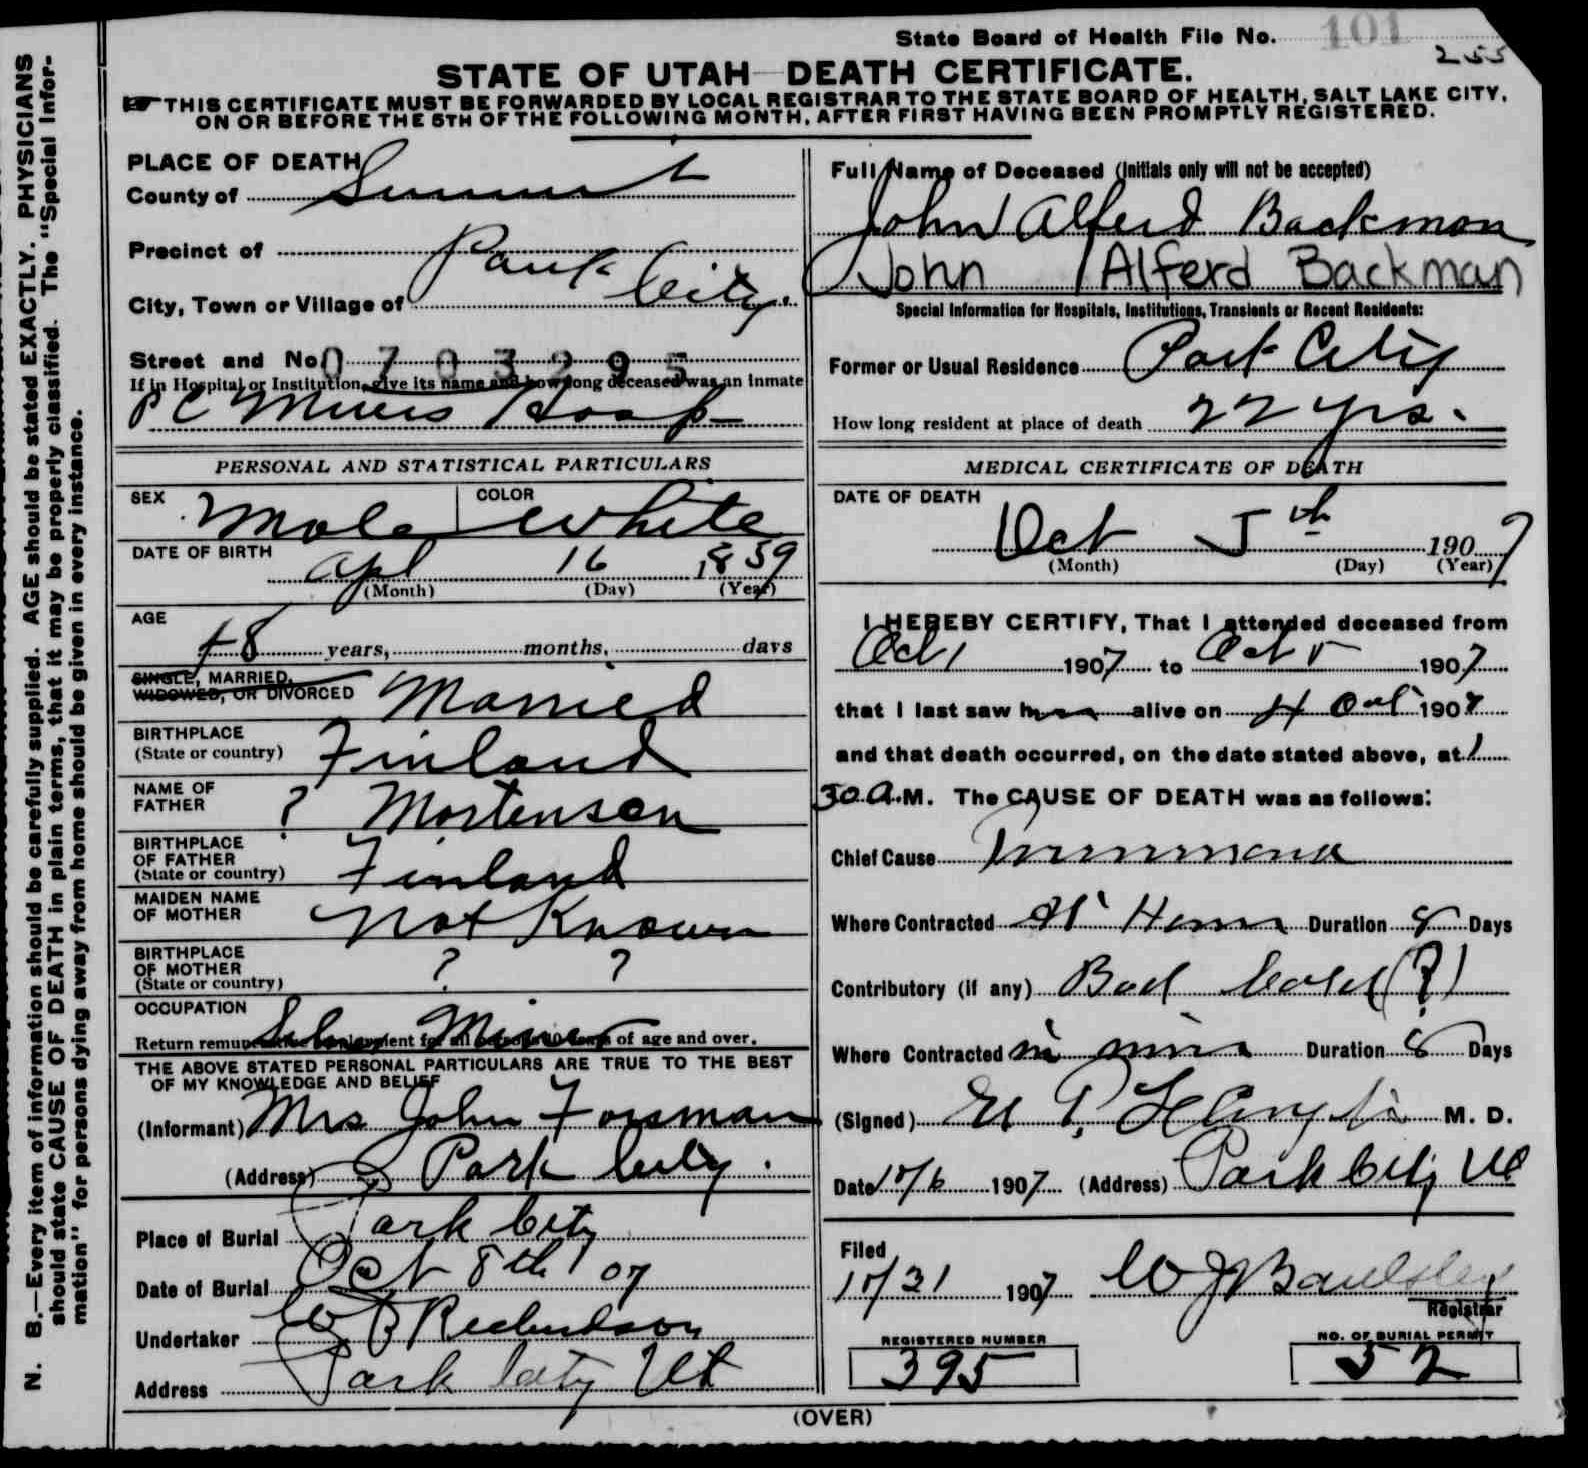 State Board of Health File No. 101
255
STATE OF UTAH—DEATH CERTIFICATE.
THIS CERTIFICATE MUST BE FORWARDED BY LOCAL REGISTRAR TO THE STATE BOARD OF HEALTH, SALT LAKE CITY,
ON OR BEFORE THE 5TH OF THE FOLLOWING MONTH, AFTER FIRST HAVING BEEN PROMPTLY REGISTERED.
N. B.—Every item of information should be carefully supplied. AGE should be stated EXACTLY. PHYSICIANS
should state CAUSE OF DEATH in plain terms, that it may be properly classified. The "Special Infor-
mation" for persons dying away from home should be given in every instance.
PLACE OF DEATH
County of Summit
Precinct of Park City
City, Town or Village of
Street and No. 0703295
If in Hospital or Institution, give its name and how long deceased was an Inmate
P C Miners Hosp
PERSONAL AND STATISTICAL PARTICULARS
SEX Male COLOR White
DATE OF BIRTH
Apl 16 1859
(Month) (Day) (Year)
AGE
48 years, months, days
SINGLE, MARRIED,
WIDOWED, OR DIVORCED Married
BIRTHPLACE
(State or country) Finland
NAME OF
FATHER ? Mortensen
BIRTHPLACE
OF FATHER
(State or country) Finland
MAIDEN NAME
OF MOTHER Not Known
BIRTHPLACE
OF MOTHER
(State or country) ? ?
OCCUPATION
Miner
Return of age and over.
THE ABOVE STATED PERSONAL PARTICULARS ARE TRUE TO THE BEST
OF MY KNOWLEDGE AND BELIEF
(Informant) Mrs John Forsman
(Address) Park City.
Place of Burial Park City
Date of Burial Oct 8th 07
Undertaker Richardson
Address Park City Ut
Full Name of Deceased (Initials only will not be accepted)
John Alferd Backman
John Alferd Backman
Special Information for Hospitals, Institutions, Transients or Recent Residents:
Former or Usual Residence Park City
How long resident at place of death 22 yrs.
MEDICAL CERTIFICATE OF DEATH
DATE OF DEATH
Oct 5th 1907
(Month) (Day) (Year)
I HEREBY CERTIFY, That I attended deceased from
Oct 1 1907 to Oct 5 1907
that I last saw him alive on 4 Oct 1907
and that death occurred, on the date stated above, at 1
30 A.M. The CAUSE OF DEATH was as follows:
Chief Cause Pneumonia
Where Contracted At Home Duration 8 Days
Contributory (if any) Bad Cold (?)
Where Contracted in mine Duration 8 Days
(Signed) M. D.
Date 10/6 1907 (Address) Park City Ut
Filed
10/31 1907 W J
Registrar
REGISTERED NUMBER
395
NO. OF BURIAL PERMIT
52
(OVER)